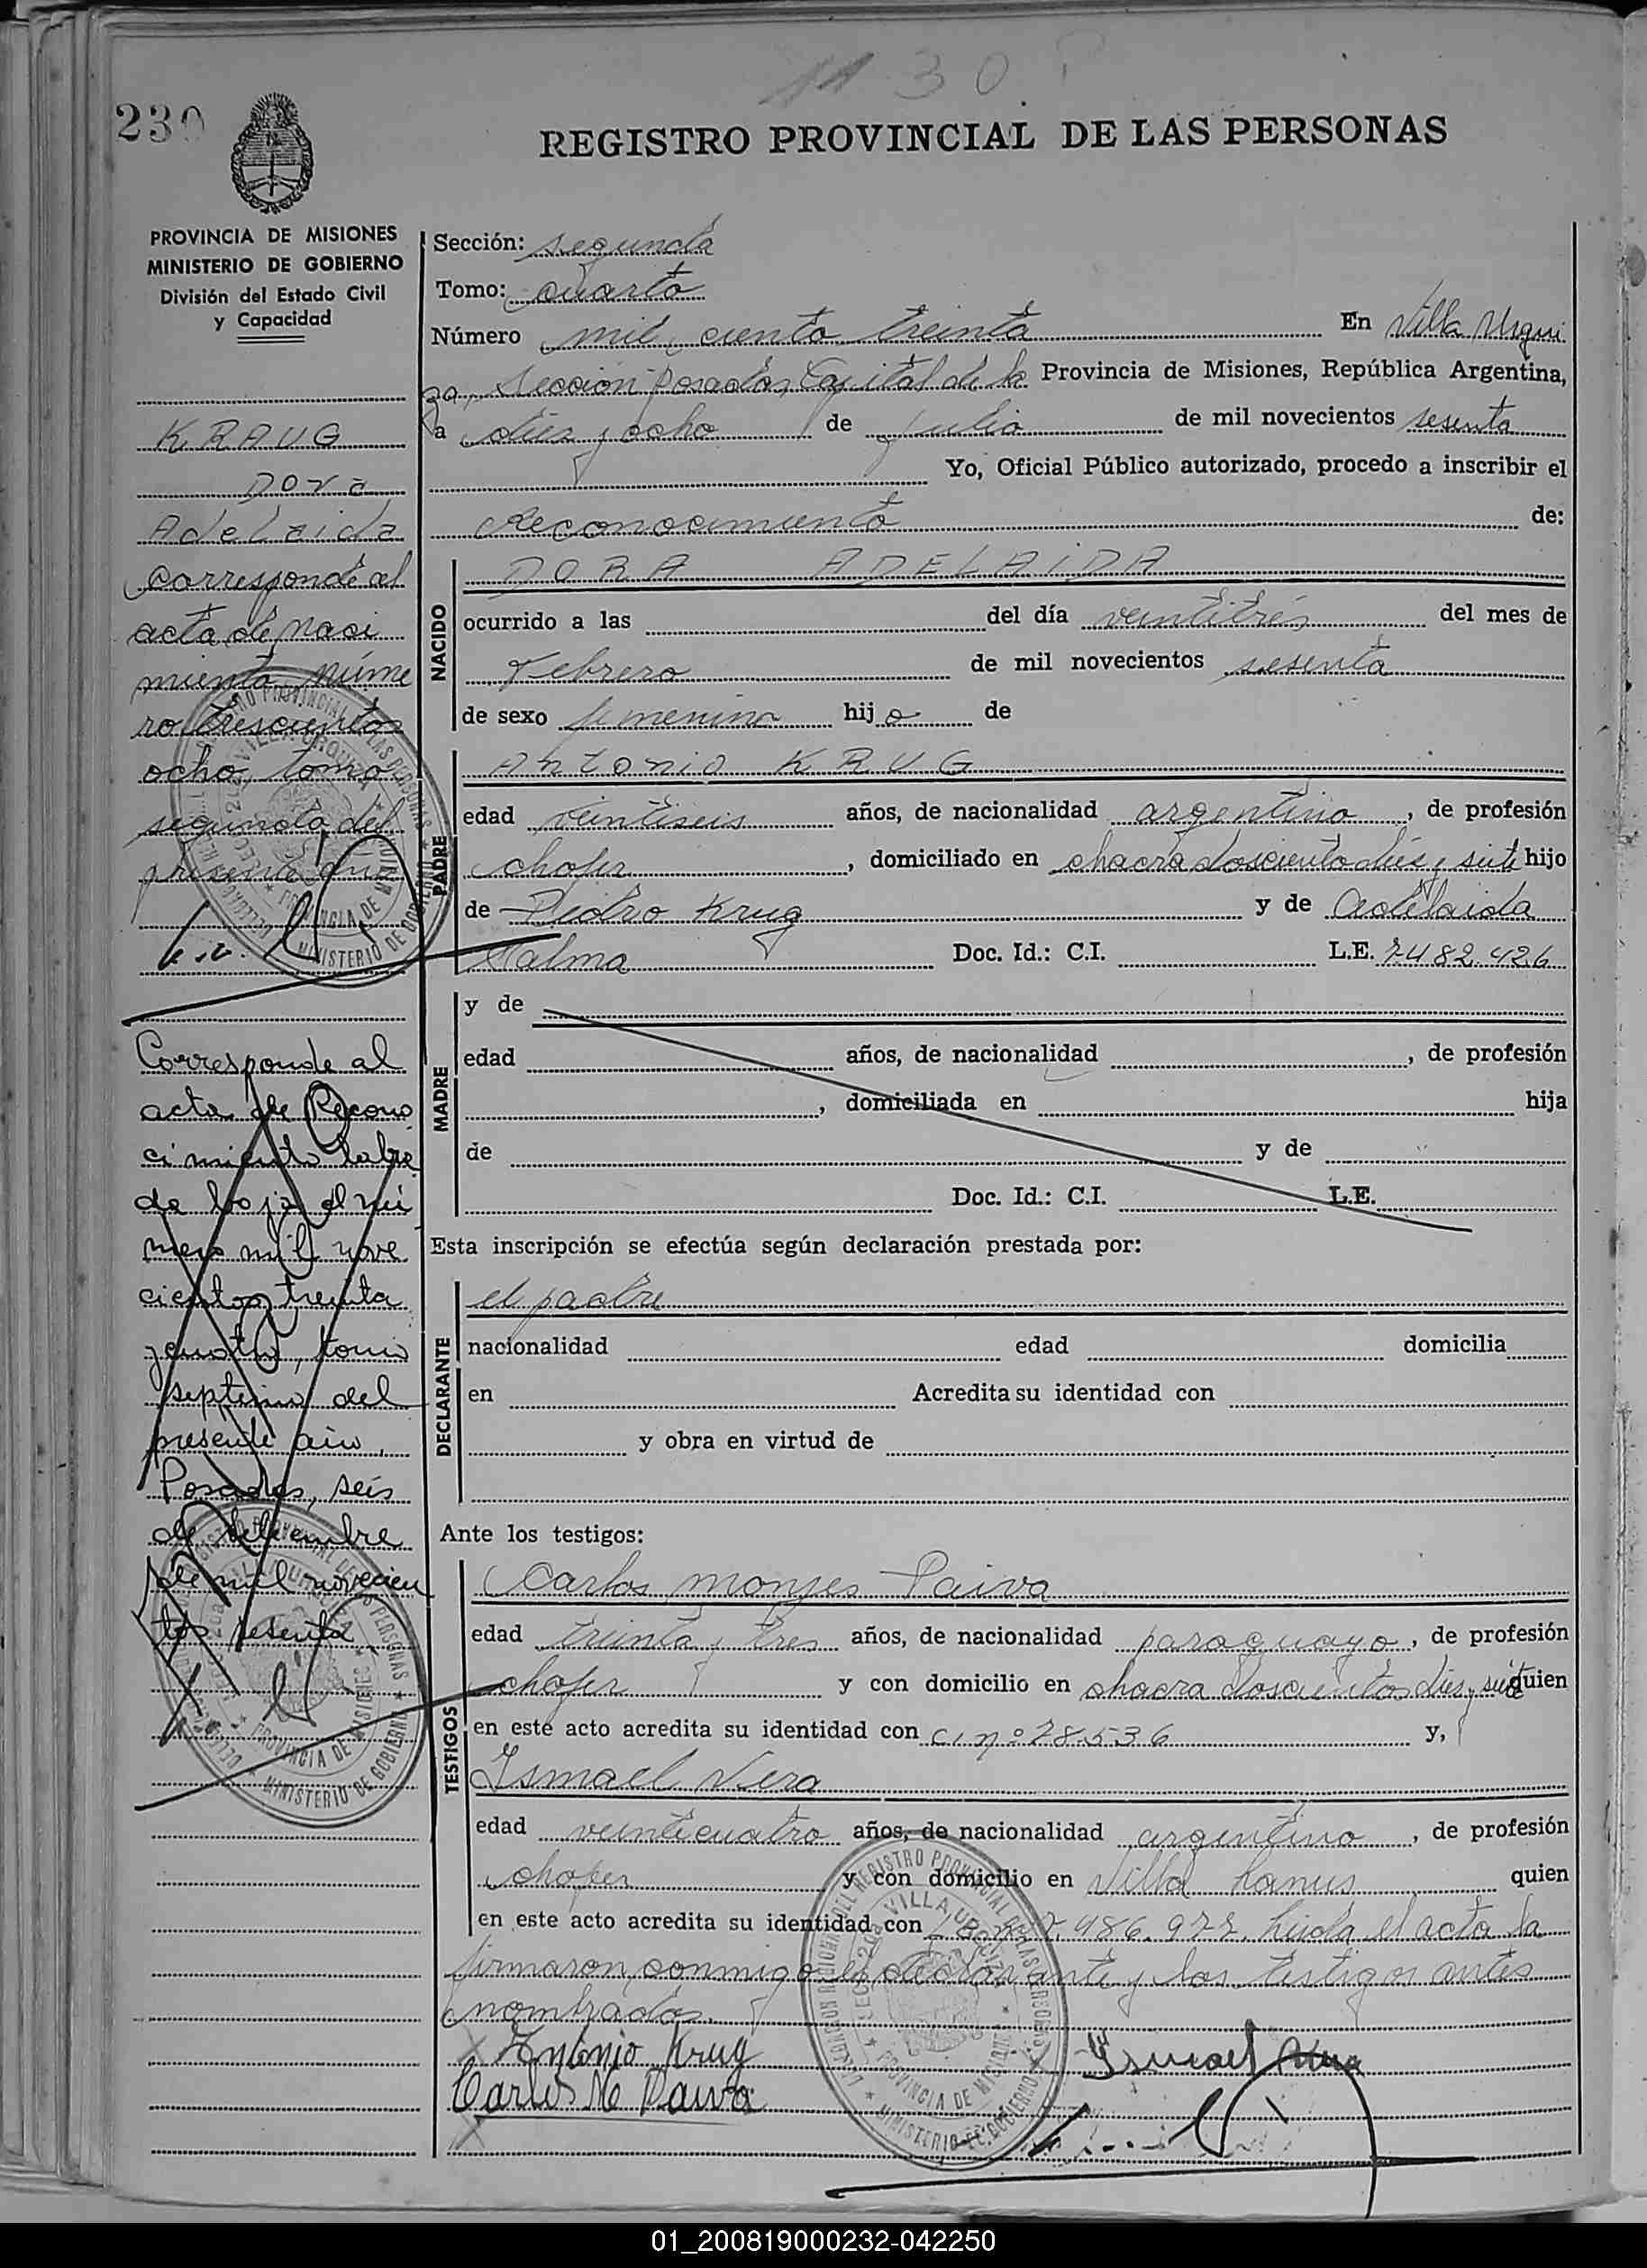 1130
230
REGISTRO PROVINCIAL DE LAS PERSONAS
PROVINCIA DE MISIONES
MINISTERIO DE GOBIERNO
División del Estado Civil
y Capacidad
KRAUG
Dora
Adelaida
Corresponde al
acta de naci
miento núme
ro trescientos
ocho, tomo
segundo del
presente año
Corresponde al
acta de Recono
cimiento labra
da bajo el nú
mero mil nove
cientos treinta
y cuatro, tomo
septimo del
presente año,
Posadas, seis
de diciembre
de mil novecien
tos sesenta
Sección: segunda
Tomo: cuarto
Número mil, ciento treinta En Villa Urqui
za, Sección Posadas, Capital de la Provincia de Misiones, República Argentina,
a diez y ocho de Julio de mil novecientos sesenta
Yo, Oficial Público autorizado, procedo a inscribir el
Reconocimiento de:
NACIDO
DORA ADELAIDA
ocurrido a las del día veintitrés del mes de
Febrero de mil novecientos sesenta
de sexo femenino hija de
PADRE
Antonio KRUG
edad veintiseis años, de nacionalidad argentino, de profesión
chofer, domiciliado en chacra doscientos diés y siete hijo
de Pedro Krug y de Adelaida
Palma Doc. Id.: C.I. L.E. 7482.426
MADRE
y de
edad años, de nacionalidad , de profesión
, domiciliada en hija
de y de
Doc. Id.: C.I. L.E.
Esta inscripción se efectúa según declaración prestada por:
DECLARANTE
el padre
nacionalidad edad domicilia
en Acredita su identidad con
y obra en virtud de
Ante los testigos:
TESTIGOS
Carlos Monges Paiva
edad treinta y tres años, de nacionalidad paraguayo, de profesión
chofer y con domicilio en chacra doscientos diés y siete quien
en este acto acredita su identidad con C.I nº 28.536 y,
Ismael Vera
edad veinticuatro años, de nacionalidad argentino, de profesión
chofer y con domicilio en Villa Lanus quien
en este acto acredita su identidad con 7.486.972. Leida el acta la
firmaron conmigo el declarante y los testigos antes
nombrados.
Antonio Krug
Ismael Vera
Carlos M Paiva
01_200819000232-042250